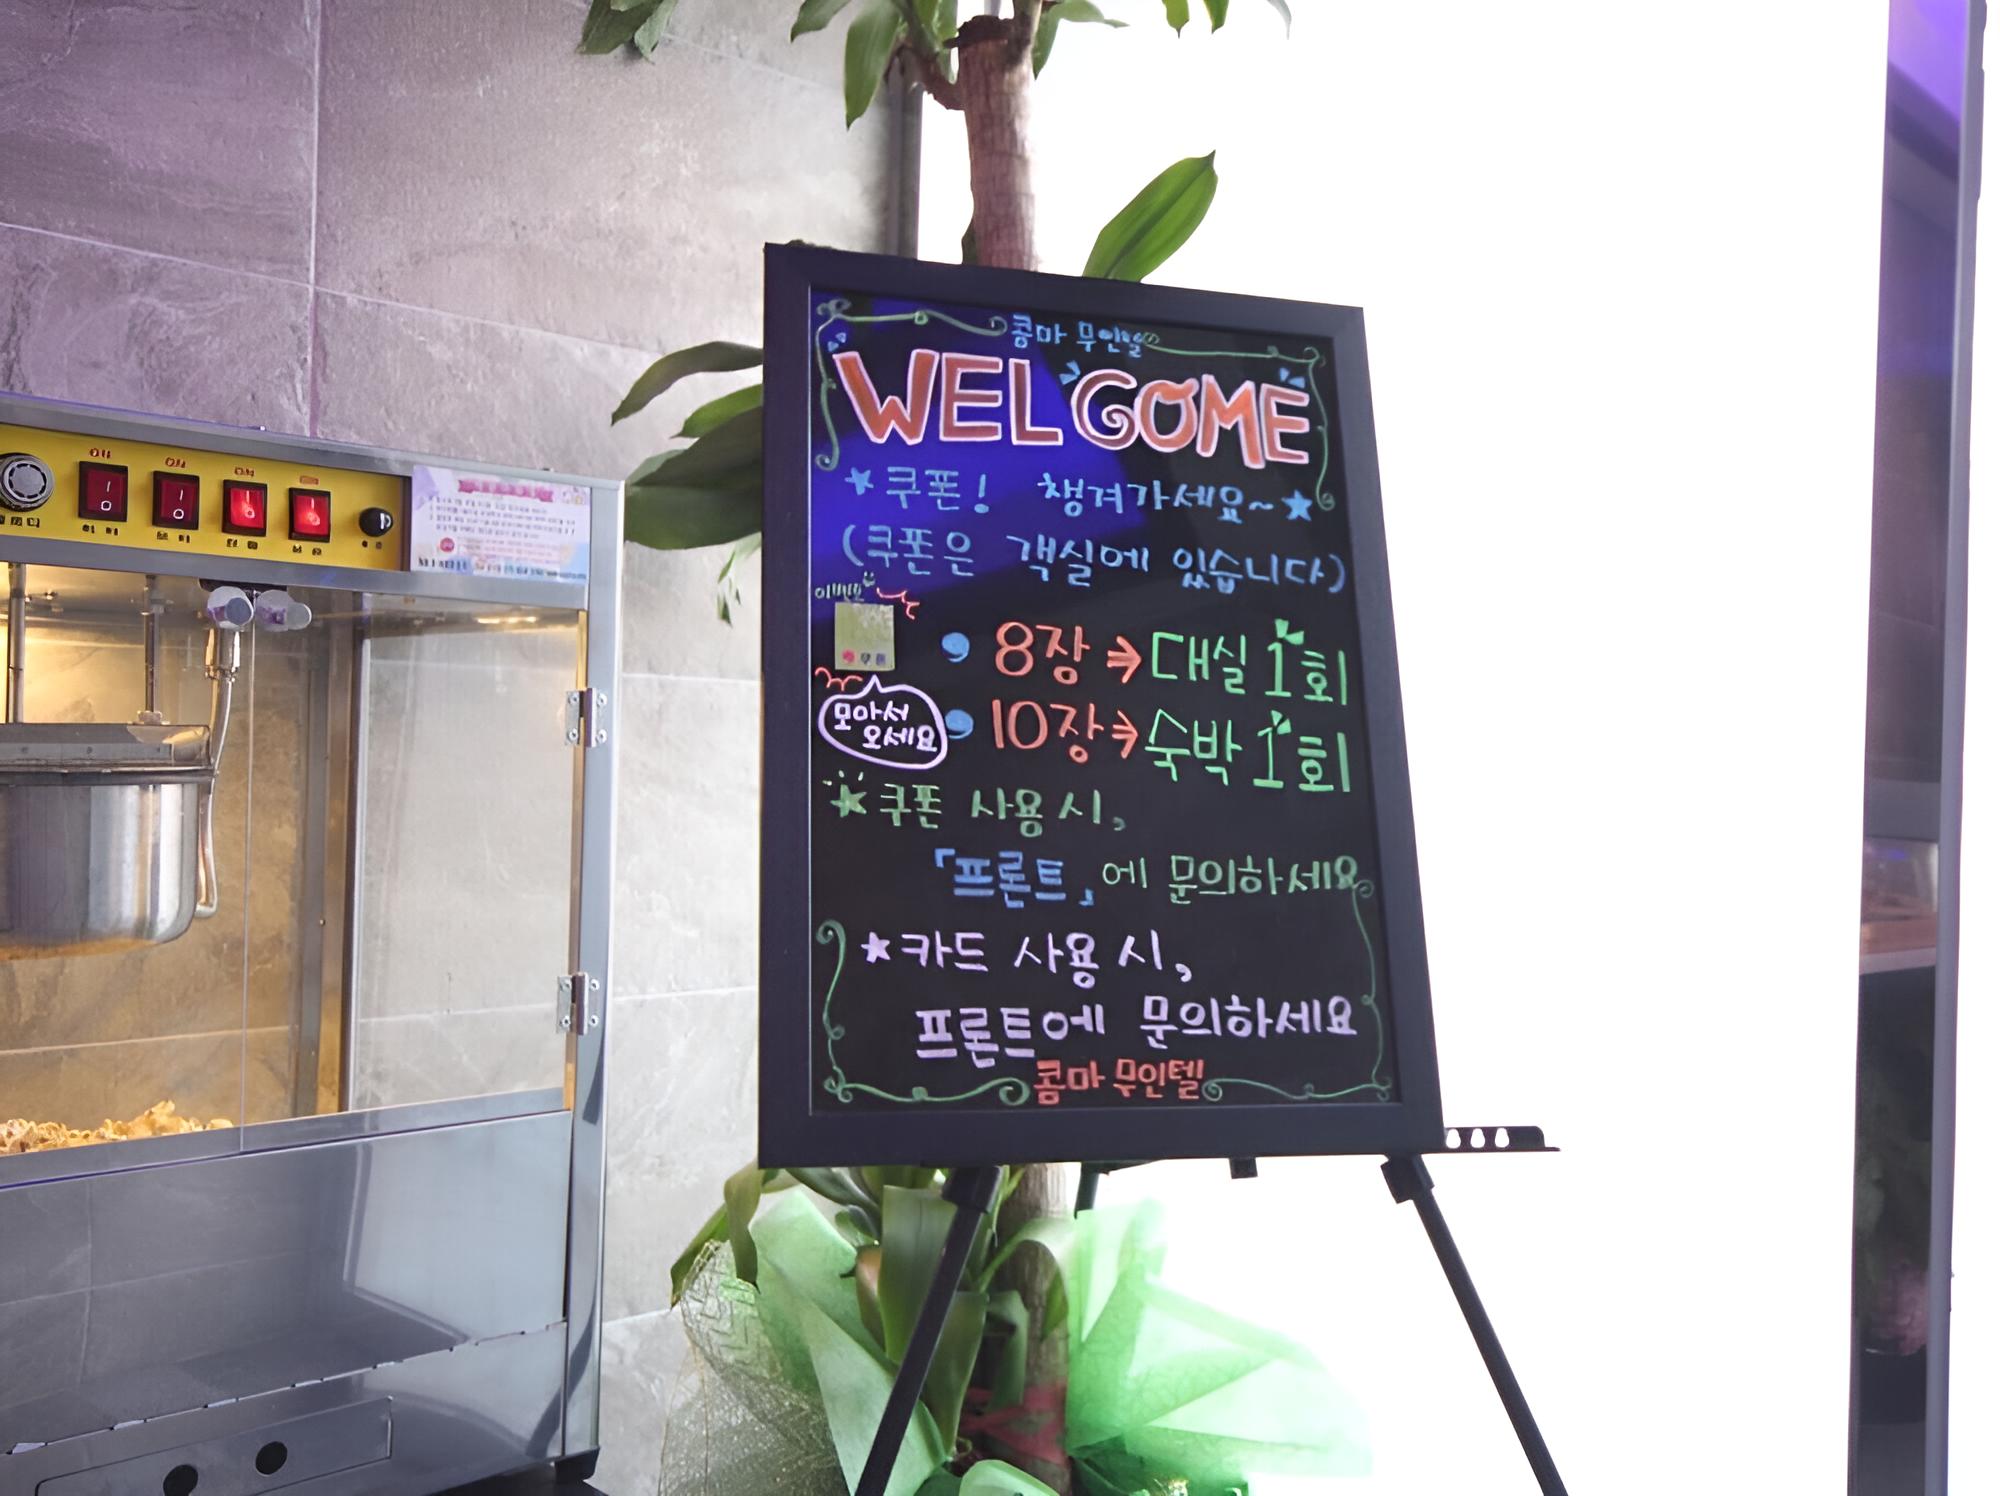 콤마 무인텔
WELCOME
쿠폰! 챙겨가세요~
(쿠폰은 객실에 있습니다)
이벤트
쿠폰
모아서
오세요
8장 → 대실 1회
10장 → 숙박 1회
쿠폰 사용 시,
「프론트」에 문의하세요
카드 사용 시,
프론트에 문의하세요
콤마 무인텔